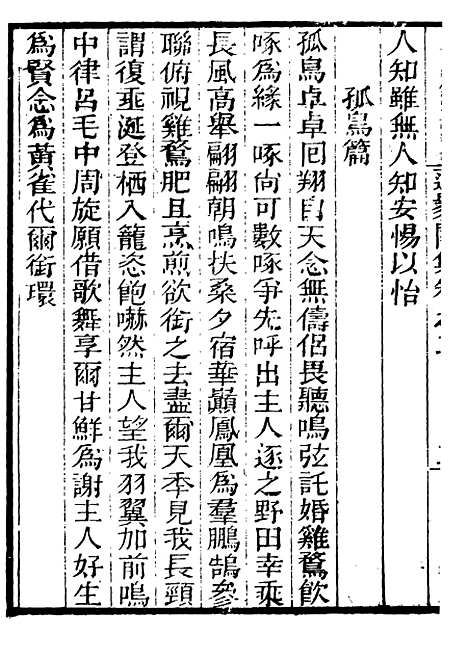 人知雖無人知安惕以怡
孤鳥篇
孤鳥卓卓回翔自天念無儔侶畏聽鳴弦託婚雞鶩飲
啄為緣一啄尙可數啄爭先呼出主人逐之野田幸乘
長風高舉翩翩朝鳴扶桑夕宿華巔鳳凰為羣鵬鵠參
聯俯視雞鶩肥且烹煎欲銜之去盡爾天年見我長頸
謂復垂涎登栖入籠恣飽嚇然主人望我羽翼加前鳴
中律呂毛中周旋願借歌舞享爾甘鮮為謝主人好生
為賢念為黃雀代爾銜環